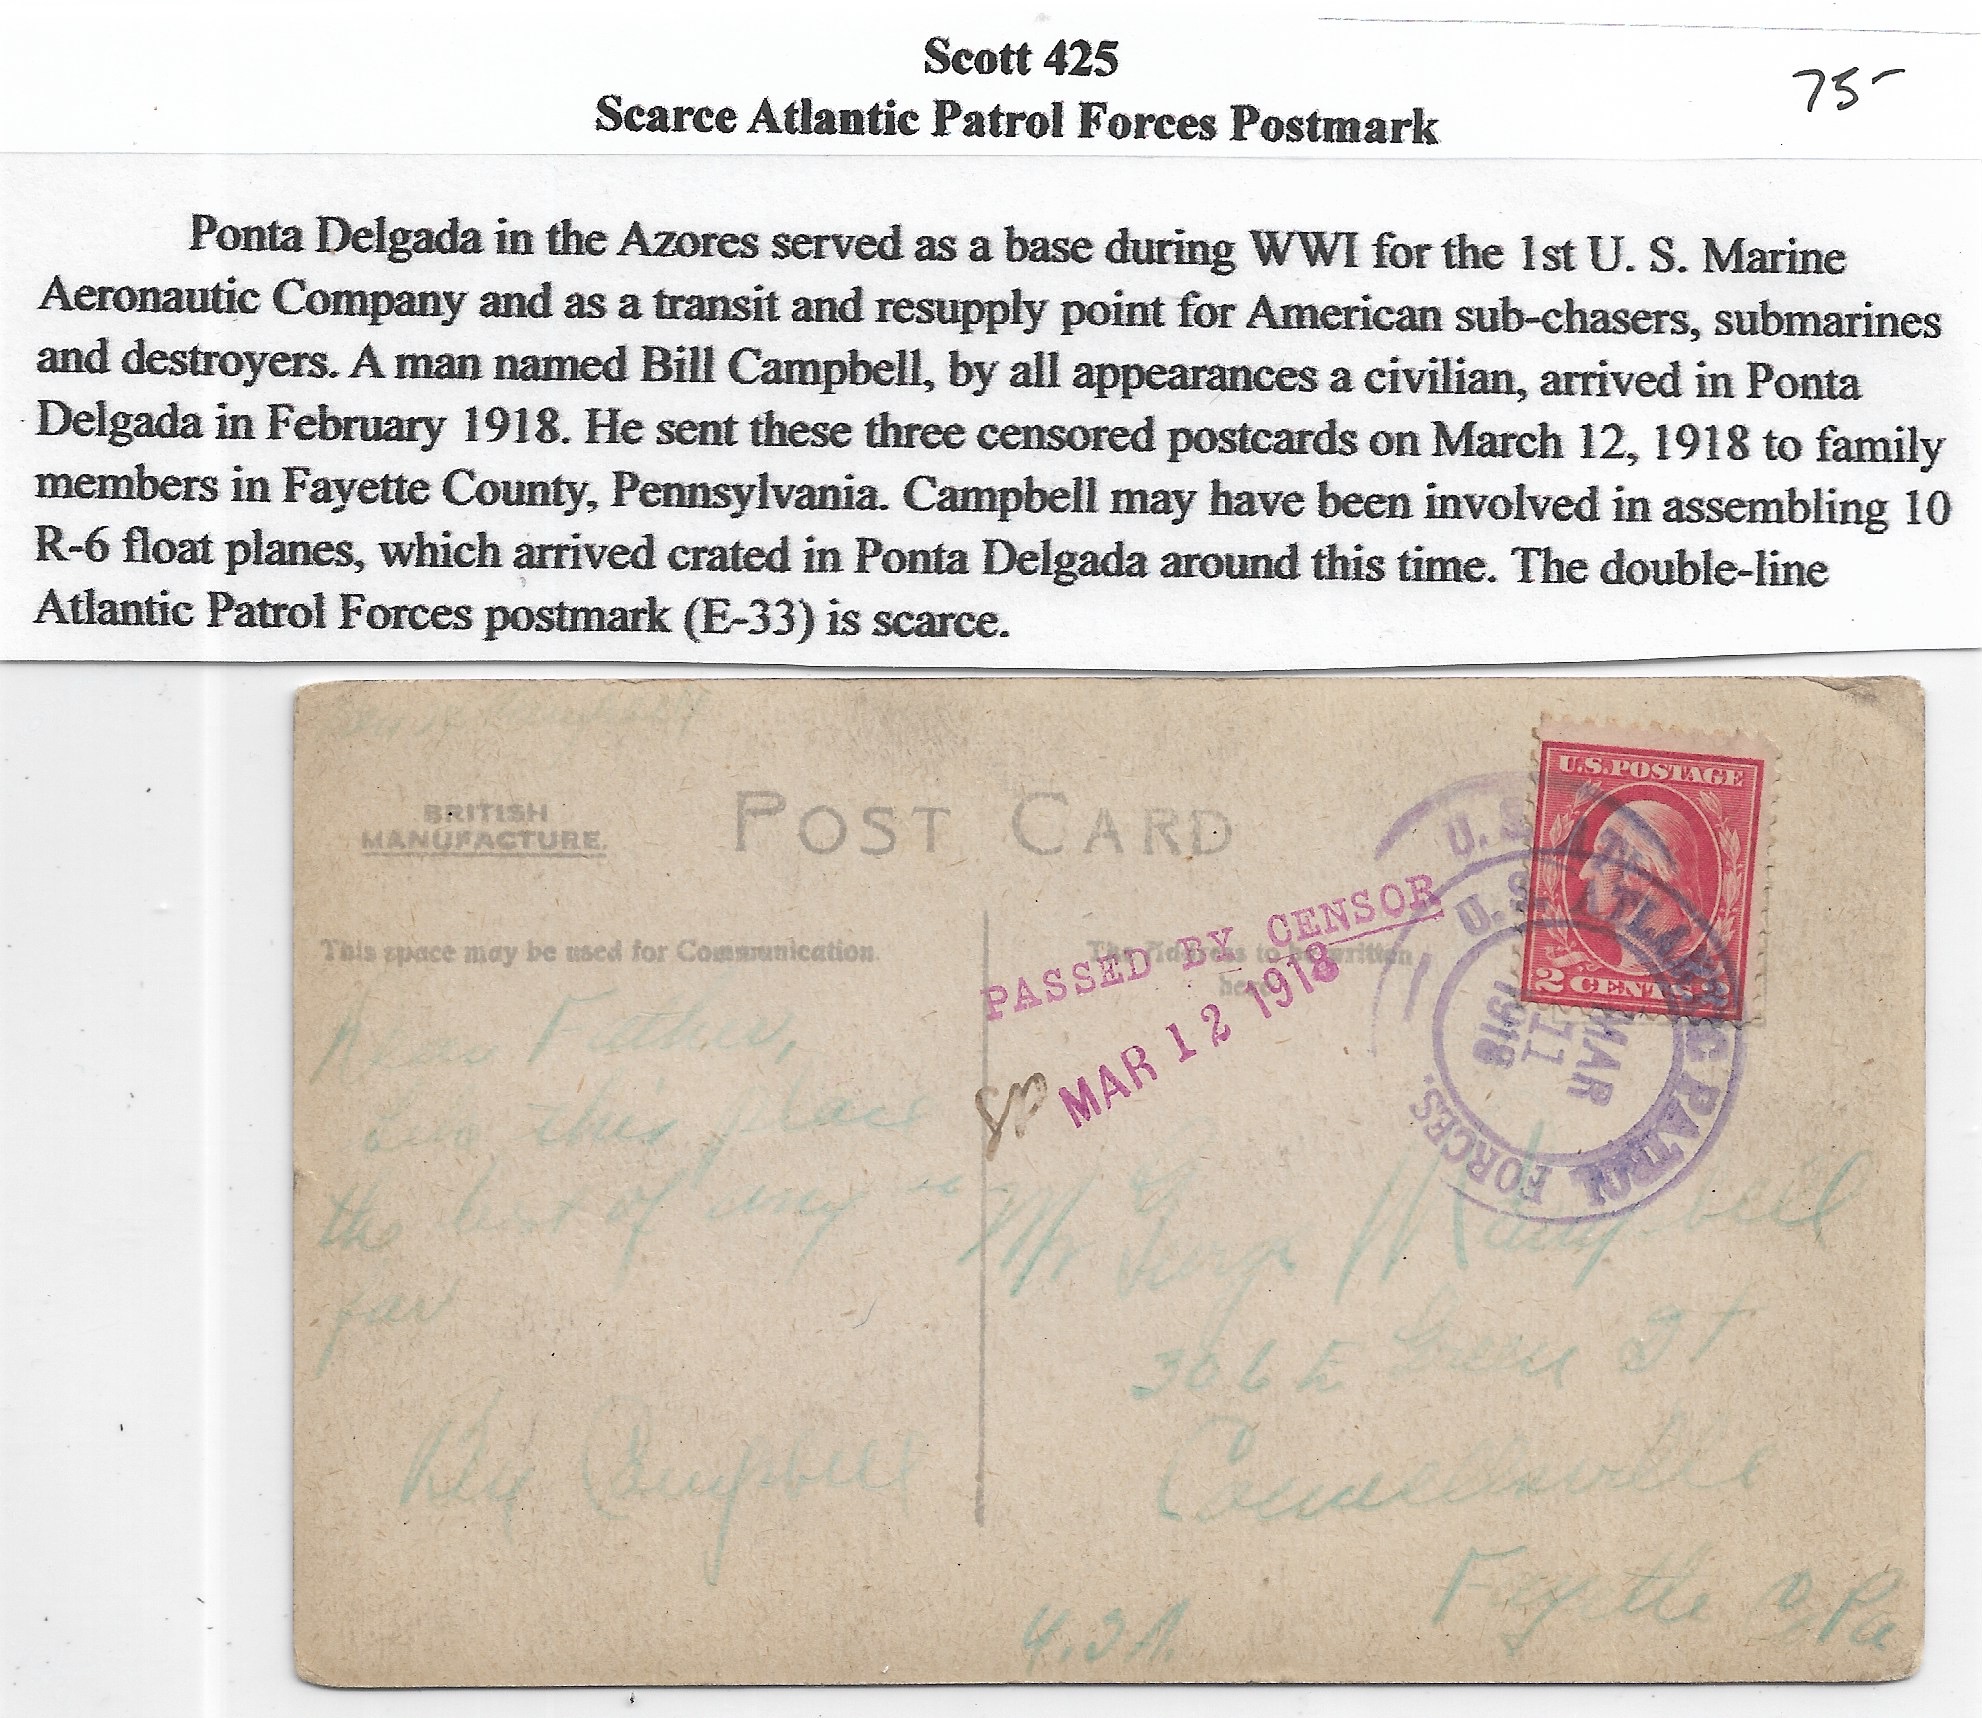 Scott 425
75-
Scarce Atlantic Patrol Forces Postmark
Ponta Delgada in the Azores served as a base during WWI for the 1st U. S. Marine
Aeronautic Company and as a transit and resupply point for American sub-chasers, submarines
and destroyers. A man named Bill Campbell, by all appearances a civilian, arrived in Ponta
Delgada in February 1918. He sent these three censored postcards on March 12, 1918 to family
members in Fayette County, Pennsylvania. Campbell may have been involved in assembling 10
R-6 float planes, which arrived crated in Ponta Delgada around this time. The double-line
Atlantic Patrol Forces postmark (E-33) is scarce.
BRITISH
MANUFACTURE.
POST CARD
U.S. POSTAGE
2 CENTS 2
U.S. ATL
U.S. ATLANTIC PATROL FORCES.
MAR
11
1918
PASSED BY CENSOR
MAR 12 1918
This space may be used for Communication.
The Address to be written
here
Dear Father,
this place
the best of any
far
Campbell
Mr George Campbell
306 E Green St
Connellsville
Fayette Co Pa
U.S.A.